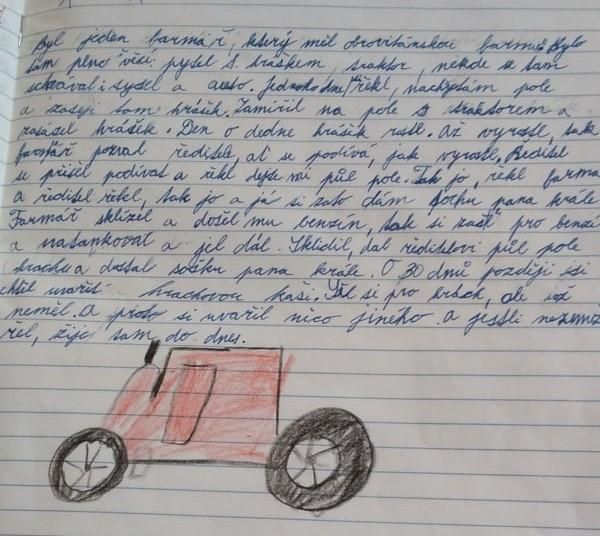 Byl jeden farmář, který měl obrovitánskou farmu. Bylo
tam plno věcí: pytel s hráškem, traktor, někde se tam
schovával i sysel a auto. Jednoho dne řekl, nachystám pole
a zaseji tam hrášek. Zamířil na pole s traktorem a
zasázel hrášek. Den o dedne hrášek rostl. Až vyrostl, tak
farmář pozval ředitele, ať se podívá, jak vyrostl. Ředitel
se přišel podívat a řekl dejte mi půl pole. Tak jo, řekl farma
a ředitel řekl, tak jo a já si zato dám sochu pana krále
Farmář sklízel a došel mu benzín, tak si zašel pro benzí
a natankoval a jel dál. Sklidil, dal ředitelovi půl pole
hrachu a dostal sošku pana krále. O 30 dnů později si
chtěl uvařit hrachovou kaši. Šel si pro hrách, ale už
neměl. A proto si uvařil něco jiného a jestli neumř
řel, žije tam do dnes.